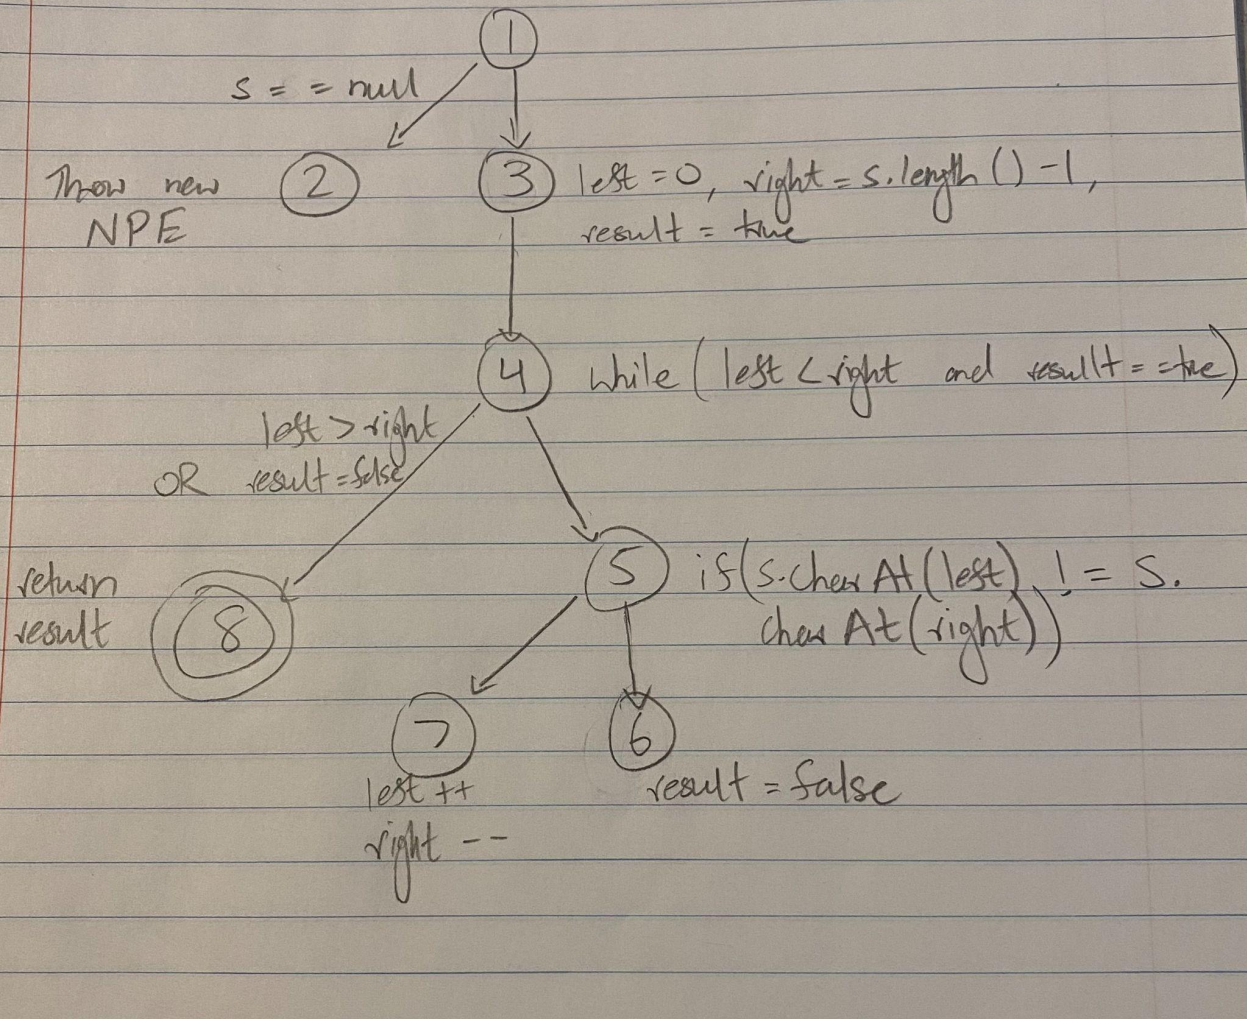 1
s = = null
Throw new
NPE
2
3
left = 0, right = s.length () - 1,
result = true
4
while ( left < right and result = = true )
left > right
OR result = false
return
result
8
5
if ( s.charAt (left) != s.
charAt (right) )
7
left ++
right --
6
result = false